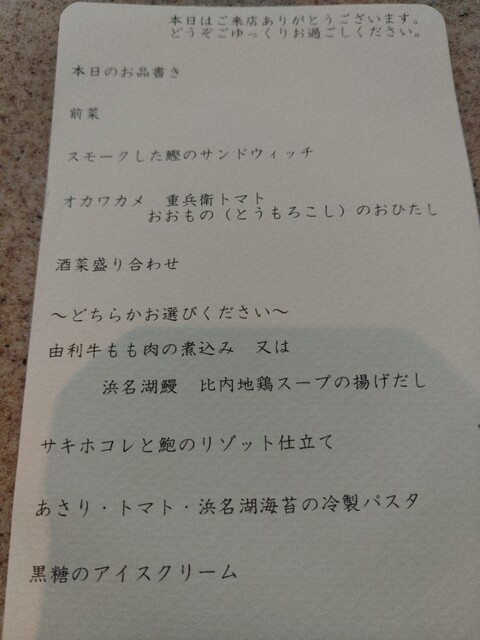 本日はご来店ありがとうございます。
どうぞごゆっくりお過ごしください。
本日のお品書き
前菜
スモークした鰹のサンドウィッチ
オカワカメ　重兵衛トマト
おおもの（とうもろこし）のおひたし
酒菜盛り合わせ
～どちらかお選びください～
由利牛もも肉の煮込み　又は
浜名湖鰻　比内地鶏スープの揚げだし
サキホコレと鮑のリゾット仕立て
あさり・トマト・浜名湖海苔の冷製パスタ
黒糖のアイスクリーム